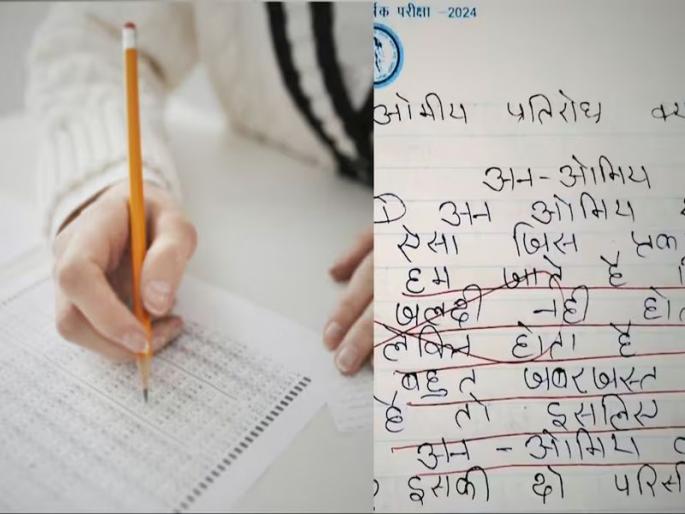 र्षिक परीक्षा -2024
ओमीय प्रतिरोध क्य
अन-ओमिय
1 अन ओमिय
ऐसा जिस एक
हम जाते है
जलदी नही होत
लेकिन होता है
बहुत जबरजस्त
है तो इसलिए
अन - ओमिय
इसकी दो परिसी